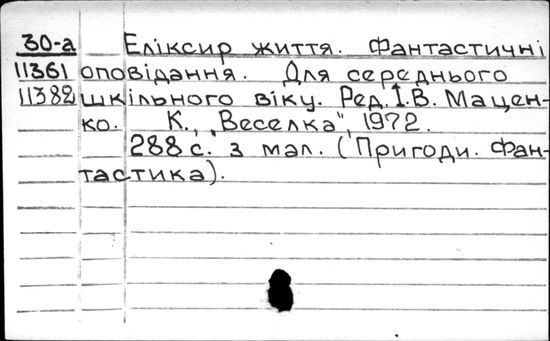 30-а Еліксир життя. Фантастичні
11361 оповідання. Для середнього
11382 шкільного віку. Ред. І.В. Мацен-
ко. К., „Веселка", 1972.
288 с. з мал. (Пригоди. Фан-
тастика).